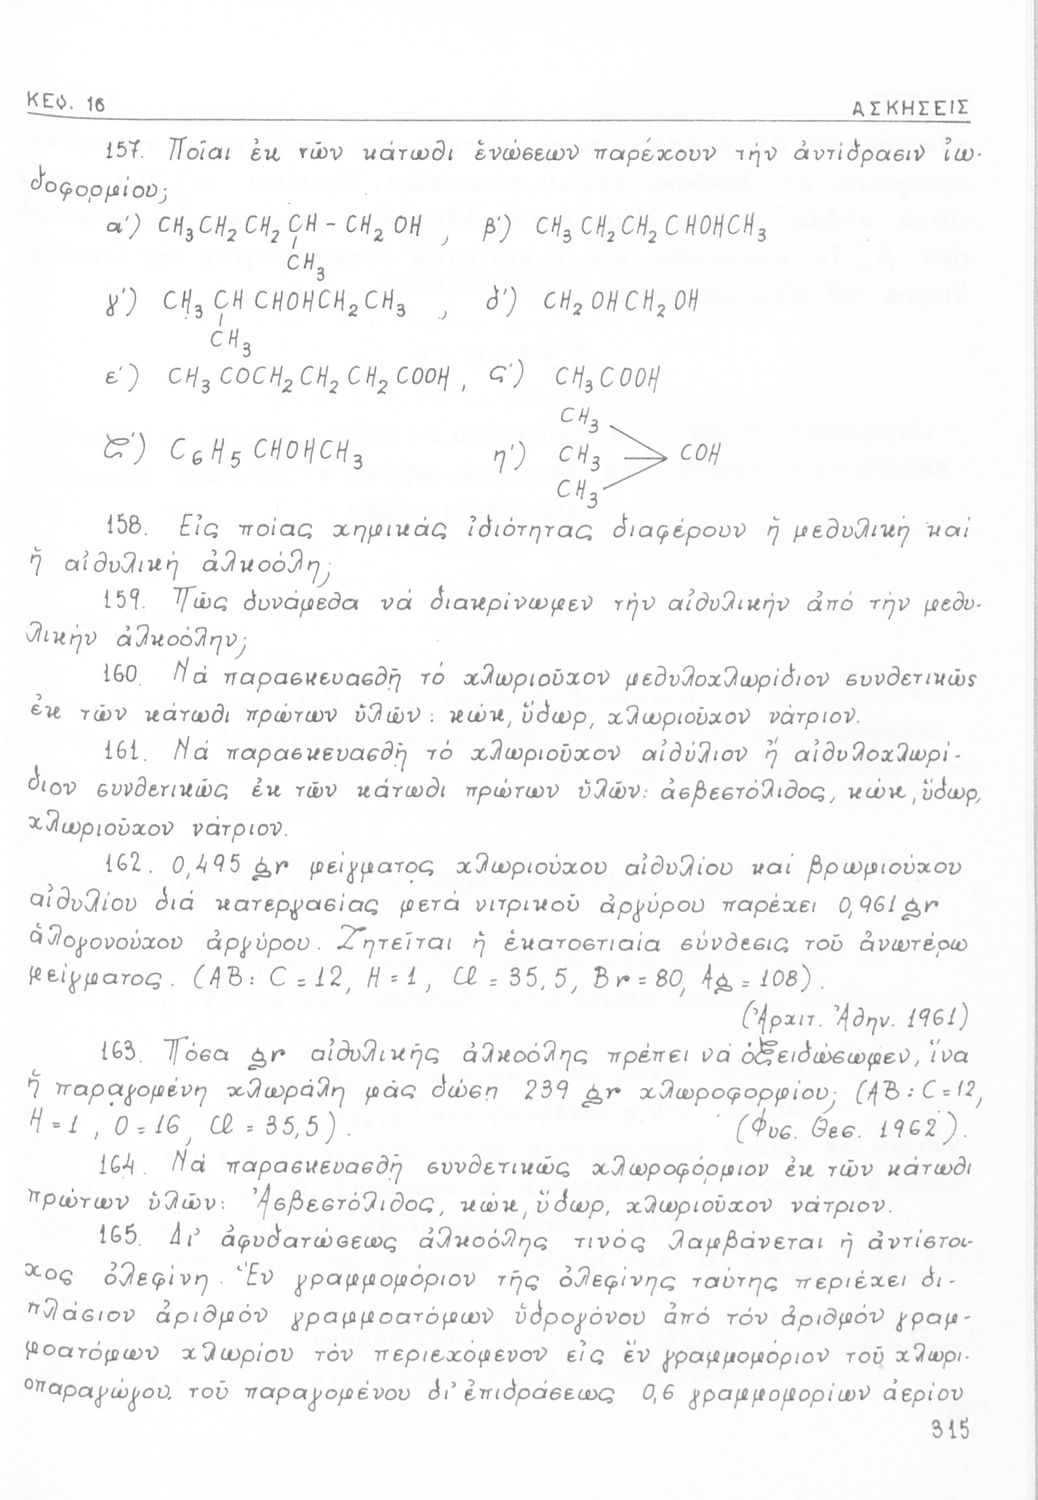 ΚΕΦ. 16 ΑΣΚΗΣΕΙΣ
157. Ποῖαι ἐκ τῶν κάτωθι ἑνώσεων παρέχουν τήν ἀντίδρασιν ἰω-
δοφορμίου;
α') CH3CH2CH2CH-CH2OH , β') CH3CH2CH2CHOHCH3
CH3
γ') CH3CHCHOHCH2CH3 , δ') CH2OHCH2OH
CH3
ε') CH3COCH2CH2CH2COOH , ς') CH3COOH
CH3
ζ') C6H5CHOHCH3 η') CH3 COH
CH3
158. Εἰς ποίας χημικάς ἰδιότητας διαφέρουν ἡ μεθυλική καί
ἡ αἰθυλική ἀλκοόλη;
159. Πῶς δυνάμεθα νά διακρίνωμεν τήν αἰθυλικήν ἀπό τήν μεθυ-
λικήν ἀλκοόλην;
160. Νά παρασκευασθῇ τό χλωριοῦχον μεθυλοχλωρίδιον συνθετικῶς
ἐκ τῶν κάτωθι πρώτων ὑλῶν: κώκ, ὕδωρ, χλωριοῦχον νάτριον.
161. Νά παρασκευασθῇ τό χλωριοῦχον αἰθύλιον ἤ αἰθυλοχλωρί-
διον συνθετικῶς ἐκ τῶν κάτωθι πρώτων ὑλῶν: ἀσβεστόλιθος, κώκ, ὕδωρ,
χλωριοῦχον νάτριον.
162. 0,495 gr μείγματος χλωριούχου αἰθυλίου καί βρωμιούχου
αἰθυλίου διά κατεργασίας μετά νιτρικοῦ ἀργύρου παρέχει 0,961 gr
ἁλογονούχου ἀργύρου. Ζητεῖται ἡ ἑκατοστιαία σύνθεσις τοῦ ἀνωτέρω
μείγματος. (ΑΒ: C=12, H=1, Cl=35,5, Br=80, Ag=108).
(Ἀρχιτ. Ἀθην. 1961)
163. Πόσα gr αἰθυλικῆς ἀλκοόλης πρέπει νά ὀξειδώσωμεν, ἵνα
ἡ παραγομένη χλωράλη μᾶς δώσῃ 239 gr χλωροφορμίου; (ΑΒ: C=12,
H=1, O=16, Cl=35,5). (Φυσ. Θεσ. 1962).
164. Νά παρασκευασθῇ συνθετικῶς χλωροφόρμιον ἐκ τῶν κάτωθι
πρώτων ὑλῶν: Ἀσβεστόλιθος, κώκ, ὕδωρ, χλωριοῦχον νάτριον.
165. Δι' ἀφυδατώσεως ἀλκοόλης τινός λαμβάνεται ἡ ἀντίστοι-
χος ὀλεφίνη. Ἕν γραμμομόριον τῆς ὀλεφίνης ταύτης περιέχει δι-
πλάσιον ἀριθμόν γραμμοατόμων ὑδρογόνου ἀπό τόν ἀριθμόν γραμ-
μοατόμων χλωρίου τόν περιεχόμενον εἰς ἕν γραμμομόριον τοῦ χλωρι-
οπαραγώγου, τοῦ παραγομένου δι' ἐπιδράσεως 0,6 γραμμομορίων ἀερίου
315